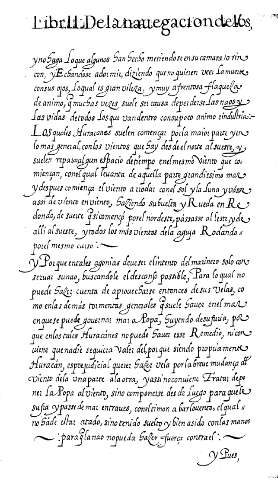 Libr.II. De la nauegacion de los
y no haga lo que algunos han hecho metiendose en su camara o rin
con, y Echandose a dormir, diziendo que no quieren ver la muerte
con sus ojos, lo qual es gran vileza, y muy afrentosa flaqueza
de animo, y muchas vezes suele ser causa de perderse las naos y
las vidas de todos los que van dentro con su poco animo industria.
Los quales Huracanes suelen començar por la maior parte, y en
lo mas general, con los vientos que hay desde el norte al sueste, y
suelen repasar algun espacio de tiempo en el mesmo Viento que co
miençan, con el qual leuanta de aquella parte grandissima mar
y despues comiença el viento a rodar con el sol y la Luna y vsar
assi de viento en viento, haziendo su buelta y Rueda en Re
dondo, de suerte q si començó por el nordeste, passasse al leste y de
alli al sueste, y todos los mas vientos de la aguja Rodando
por el mesmo curso
y Porque en tales agonias deue ser el intento del marinero solo con
seruar su nao, buscandole el descanso possible, Para lo qual no
puede hazer cuenta de aprouecharse entonces de sus Velas, co
mo en las demas tormentas generales q suele hauer en el mar
en que se puede gouernar mar a Popa, huyendo de su furia, por
que en los tales Huracanes no puede hauer este Remedio, ni con
uiene que nadie se quiera valer del, porque siendo propriamente
Huracán, es perjudicial querer hazer vela por la breue mudança de
Viento de la vna parte a la otra, y assi no conuiene Tratar de po
ner la Popa al viento, sino componerse desde luego para que le
sufra y passe de mar en traues, con el timon a barlouento, el qual
no ha de estar atado, sino tenido suelto y bien asido con las manos
para q la nao no pueda hazer fuerça contra el
y Pues